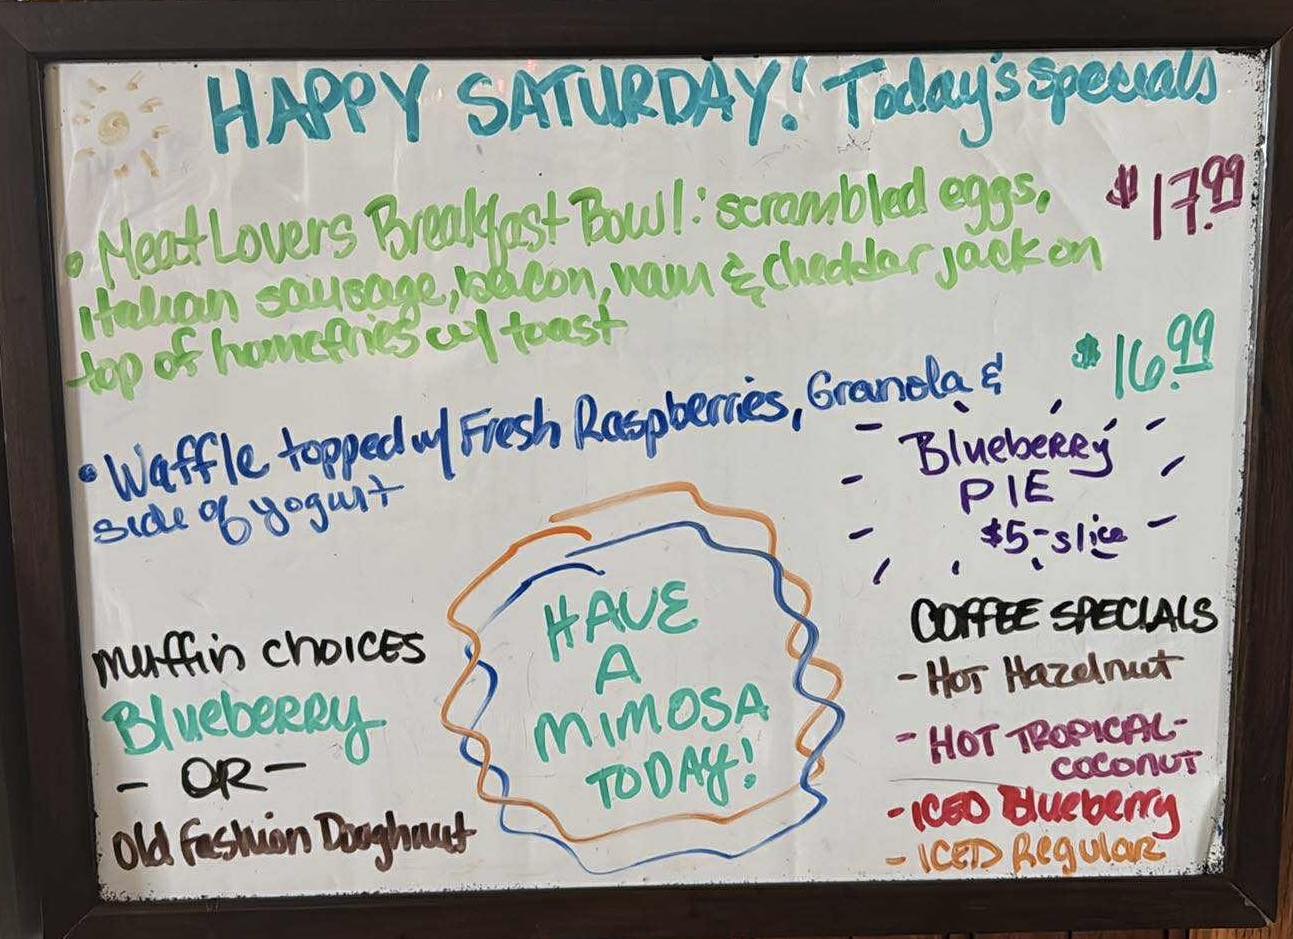 HAPPY SATURDAY! Today's specials
• Meat Lovers Breakfast Bowl: scrambled eggs, $17.99
italian sausage, bacon, ham & cheddar jack on
top of homefries w/ toast
• Waffle topped w/ Fresh Raspberries, Granola & $16.99
side of yogurt
Blueberry
PIE
$5-slice
HAVE
A
MIMOSA
TODAY!
muffin CHOICES
Blueberry
- OR -
Old Fashion Doughnut
COFFEE SPECIALS
- HOT Hazelnut
- HOT TROPICAL-
COCONUT
- ICED Blueberry
- ICED Regular